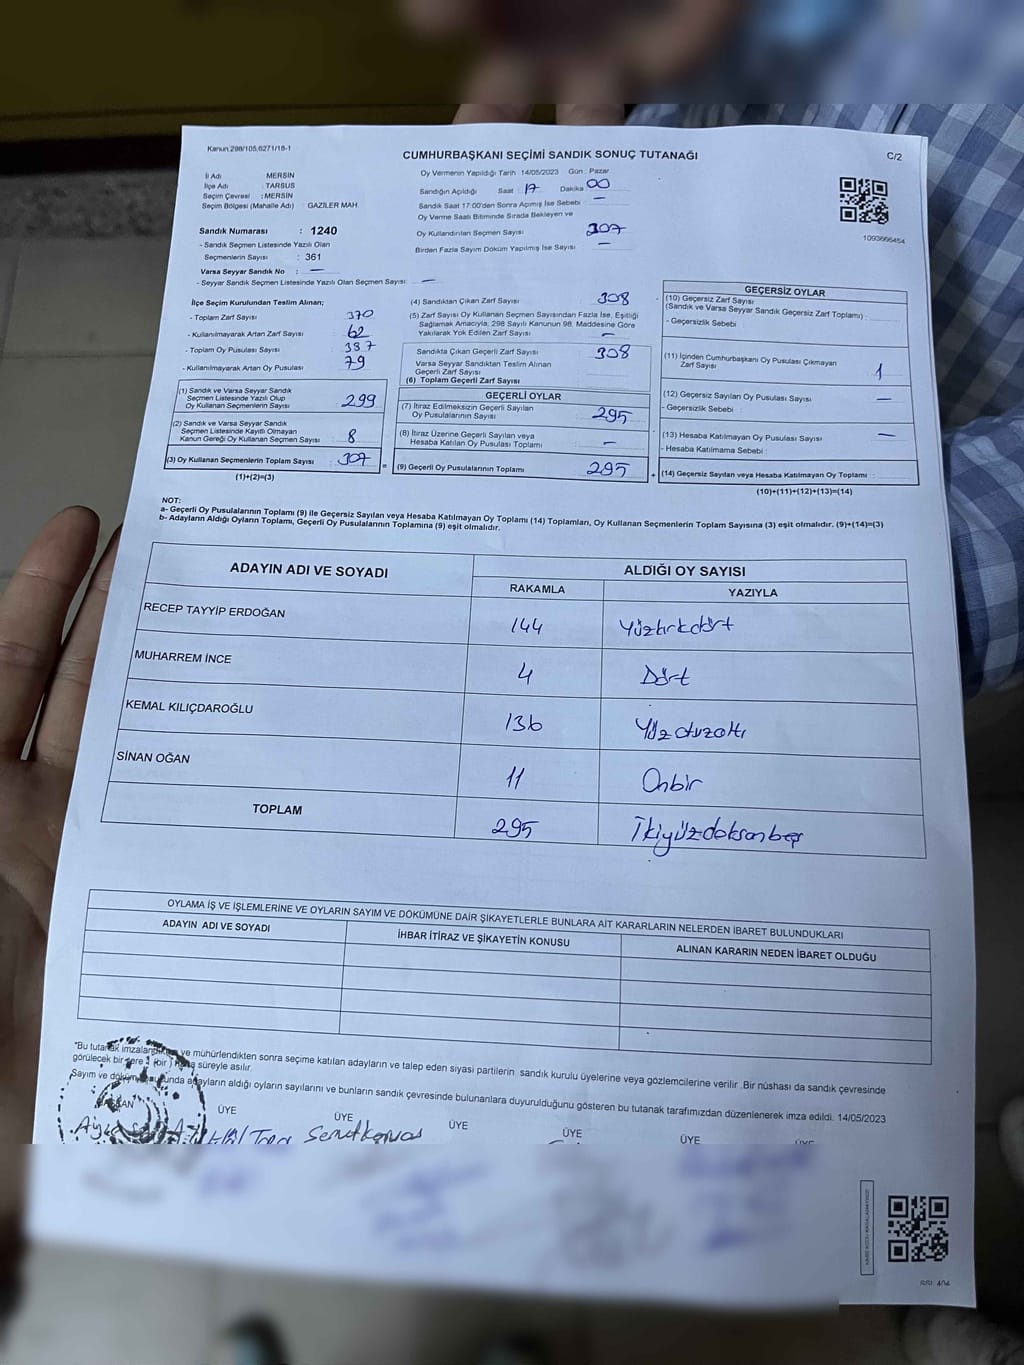 Kanun.298/105,6271/18-1
CUMHURBAŞKANI SEÇİMİ SANDIK SONUÇ TUTANAĞI
C/2
İl Adı : MERSİN
İlçe Adı : TARSUS
Seçim Çevresi : MERSİN
Seçim Bölgesi (Mahalle Adı) : GAZİLER MAH.
Sandık Numarası : 1240
- Sandık Seçmen Listesinde Yazılı Olan
Seçmenlerin Sayısı : 361
Varsa Seyyar Sandık No : —
- Seyyar Sandık Seçmen Listesinde Yazılı Olan Seçmen Sayısı : —
Oy Vermenin Yapıldığı Tarih : 14/05/2023 Gün : Pazar
Sandığın Açıldığı Saat : 17 Dakika 00
Sandık Saat 17:00'den Sonra Açımış İse Sebebi : —
Oy Verme Saati Bitiminde Sırada Bekleyen ve
Oy Kullandırılan Seçmen Sayısı : 307
Birden Fazla Sayım Döküm Yapılmış İse Sayısı : —
1093666454
İlçe Seçim Kurulundan Teslim Alınan;
- Toplam Zarf Sayısı : 370
- Kullanılmayarak Artan Zarf Sayısı : 62
- Toplam Oy Pusulası Sayısı : 387
- Kullanılmayarak Artan Oy Pusulası : 79
(1) Sandık ve Varsa Seyyar Sandık
Seçmen Listesinde Yazılı Olup
Oy Kullanan Seçmenlerin Sayısı : 299
(2) Sandık ve Varsa Seyyar Sandık
Seçmen Listesinde Kayıtlı Olmayan
Kanun Gereği Oy Kullanan Seçmen Sayısı : 8
(3) Oy Kullanan Seçmenlerin Toplam Sayısı : 307
(1)+(2)=(3)
(4) Sandıktan Çıkan Zarf Sayısı : 308
(5) Zarf Sayısı Oy Kullanan Seçmen Sayısından Fazla İse, Eşitliği
Sağlamak Amacıyla, 298 Sayılı Kanunun 98. Maddesine Göre
Yakılarak Yok Edilen Zarf Sayısı : —
Sandıkta Çıkan Geçerli Zarf Sayısı : 308
Varsa Seyyar Sandıktan Teslim Alınan
Geçerli Zarf Sayısı :
(6) Toplam Geçerli Zarf Sayısı
GEÇERLİ OYLAR
(7) İtiraz Edilmeksizin Geçerli Sayılan
Oy Pusulalarının Sayısı : 295
(8) İtiraz Üzerine Geçerli Sayılan veya
Hesaba Katılan Oy Pusulası Toplamı : —
= (9) Geçerli Oy Pusulalarının Toplamı : 295
GEÇERSİZ OYLAR
(10) Geçersiz Zarf Sayısı
(Sandık ve Varsa Seyyar Sandık Geçersiz Zarf Toplamı) :
- Geçersizlik Sebebi :
(11) İçinden Cumhurbaşkanı Oy Pusulası Çıkmayan
Zarf Sayısı : 1
(12) Geçersiz Sayılan Oy Pusulası Sayısı : —
- Geçersizlik Sebebi :
(13) Hesaba Katılmayan Oy Pusulası Sayısı : —
- Hesaba Katılmama Sebebi :
+ (14) Geçersiz Sayılan veya Hesaba Katılmayan Oy Toplamı :
(10)+(11)+(12)+(13)=(14)
NOT:
a- Geçerli Oy Pusulalarının Toplamı (9) ile Geçersiz Sayılan veya Hesaba Katılmayan Oy Toplamı (14) Toplamları, Oy Kullanan Seçmenlerin Toplam Sayısına (3) eşit olmalıdır. (9)+(14)=(3)
b- Adayların Aldığı Oyların Toplamı, Geçerli Oy Pusulalarının Toplamına (9) eşit olmalıdır.
ADAYIN ADI VE SOYADI
ALDIĞI OY SAYISI
RAKAMLA YAZIYLA
RECEP TAYYİP ERDOĞAN 144 Yüzkırkdört
MUHARREM İNCE 4 Dört
KEMAL KILIÇDAROĞLU 136 Yüzotuzaltı
SİNAN OĞAN 11 Onbir
TOPLAM 295 İkiyüzdoksanbeş
OYLAMA İŞ VE İŞLEMLERİNE VE OYLARIN SAYIM VE DÖKÜMÜNE DAİR ŞİKAYETLERLE BUNLARA AİT KARARLARIN NELERDEN İBARET BULUNDUKLARI
ADAYIN ADI VE SOYADI İHBAR İTİRAZ VE ŞİKAYETİN KONUSU ALINAN KARARIN NEDEN İBARET OLDUĞU
"Bu tutanak imzalandıktan ve mühürlendikten sonra seçime katılan adayların ve talep eden siyasi partilerin sandık kurulu üyelerine veya gözlemcilerine verilir .Bir nüshası da sandık çevresinde
görülecek bir yere 1 (bir ) hafta süreyle asılır.
Sayım ve döküm sonunda adayların aldığı oyların sayılarını ve bunların sandık çevresinde bulunanlara duyurulduğunu gösteren bu tutanak tarafımızdan düzenlenerek imza edildi. 14/05/2023
BAŞKAN ÜYE ÜYE ÜYE ÜYE ÜYE ÜYE